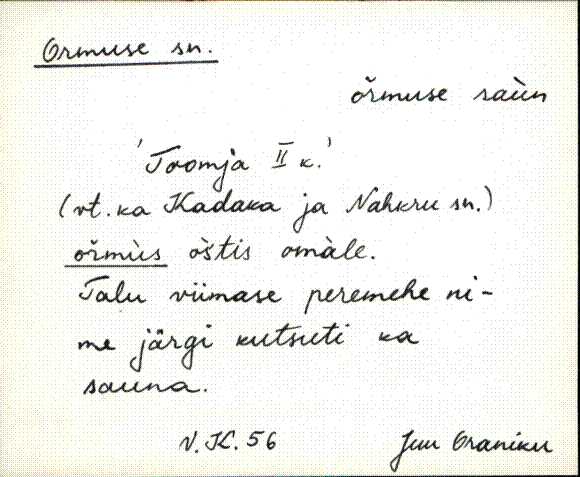 Ormuse sn.
õrmuse saùn
'Toomja II k.'
(vt. ka Kadaka ja Nahkru sn.)
õrmùs òstis omàle.
Talu viimase peremehe ni-
me järgi kutsuti ka
sauna.
V. K. 56 Juu Oraniku